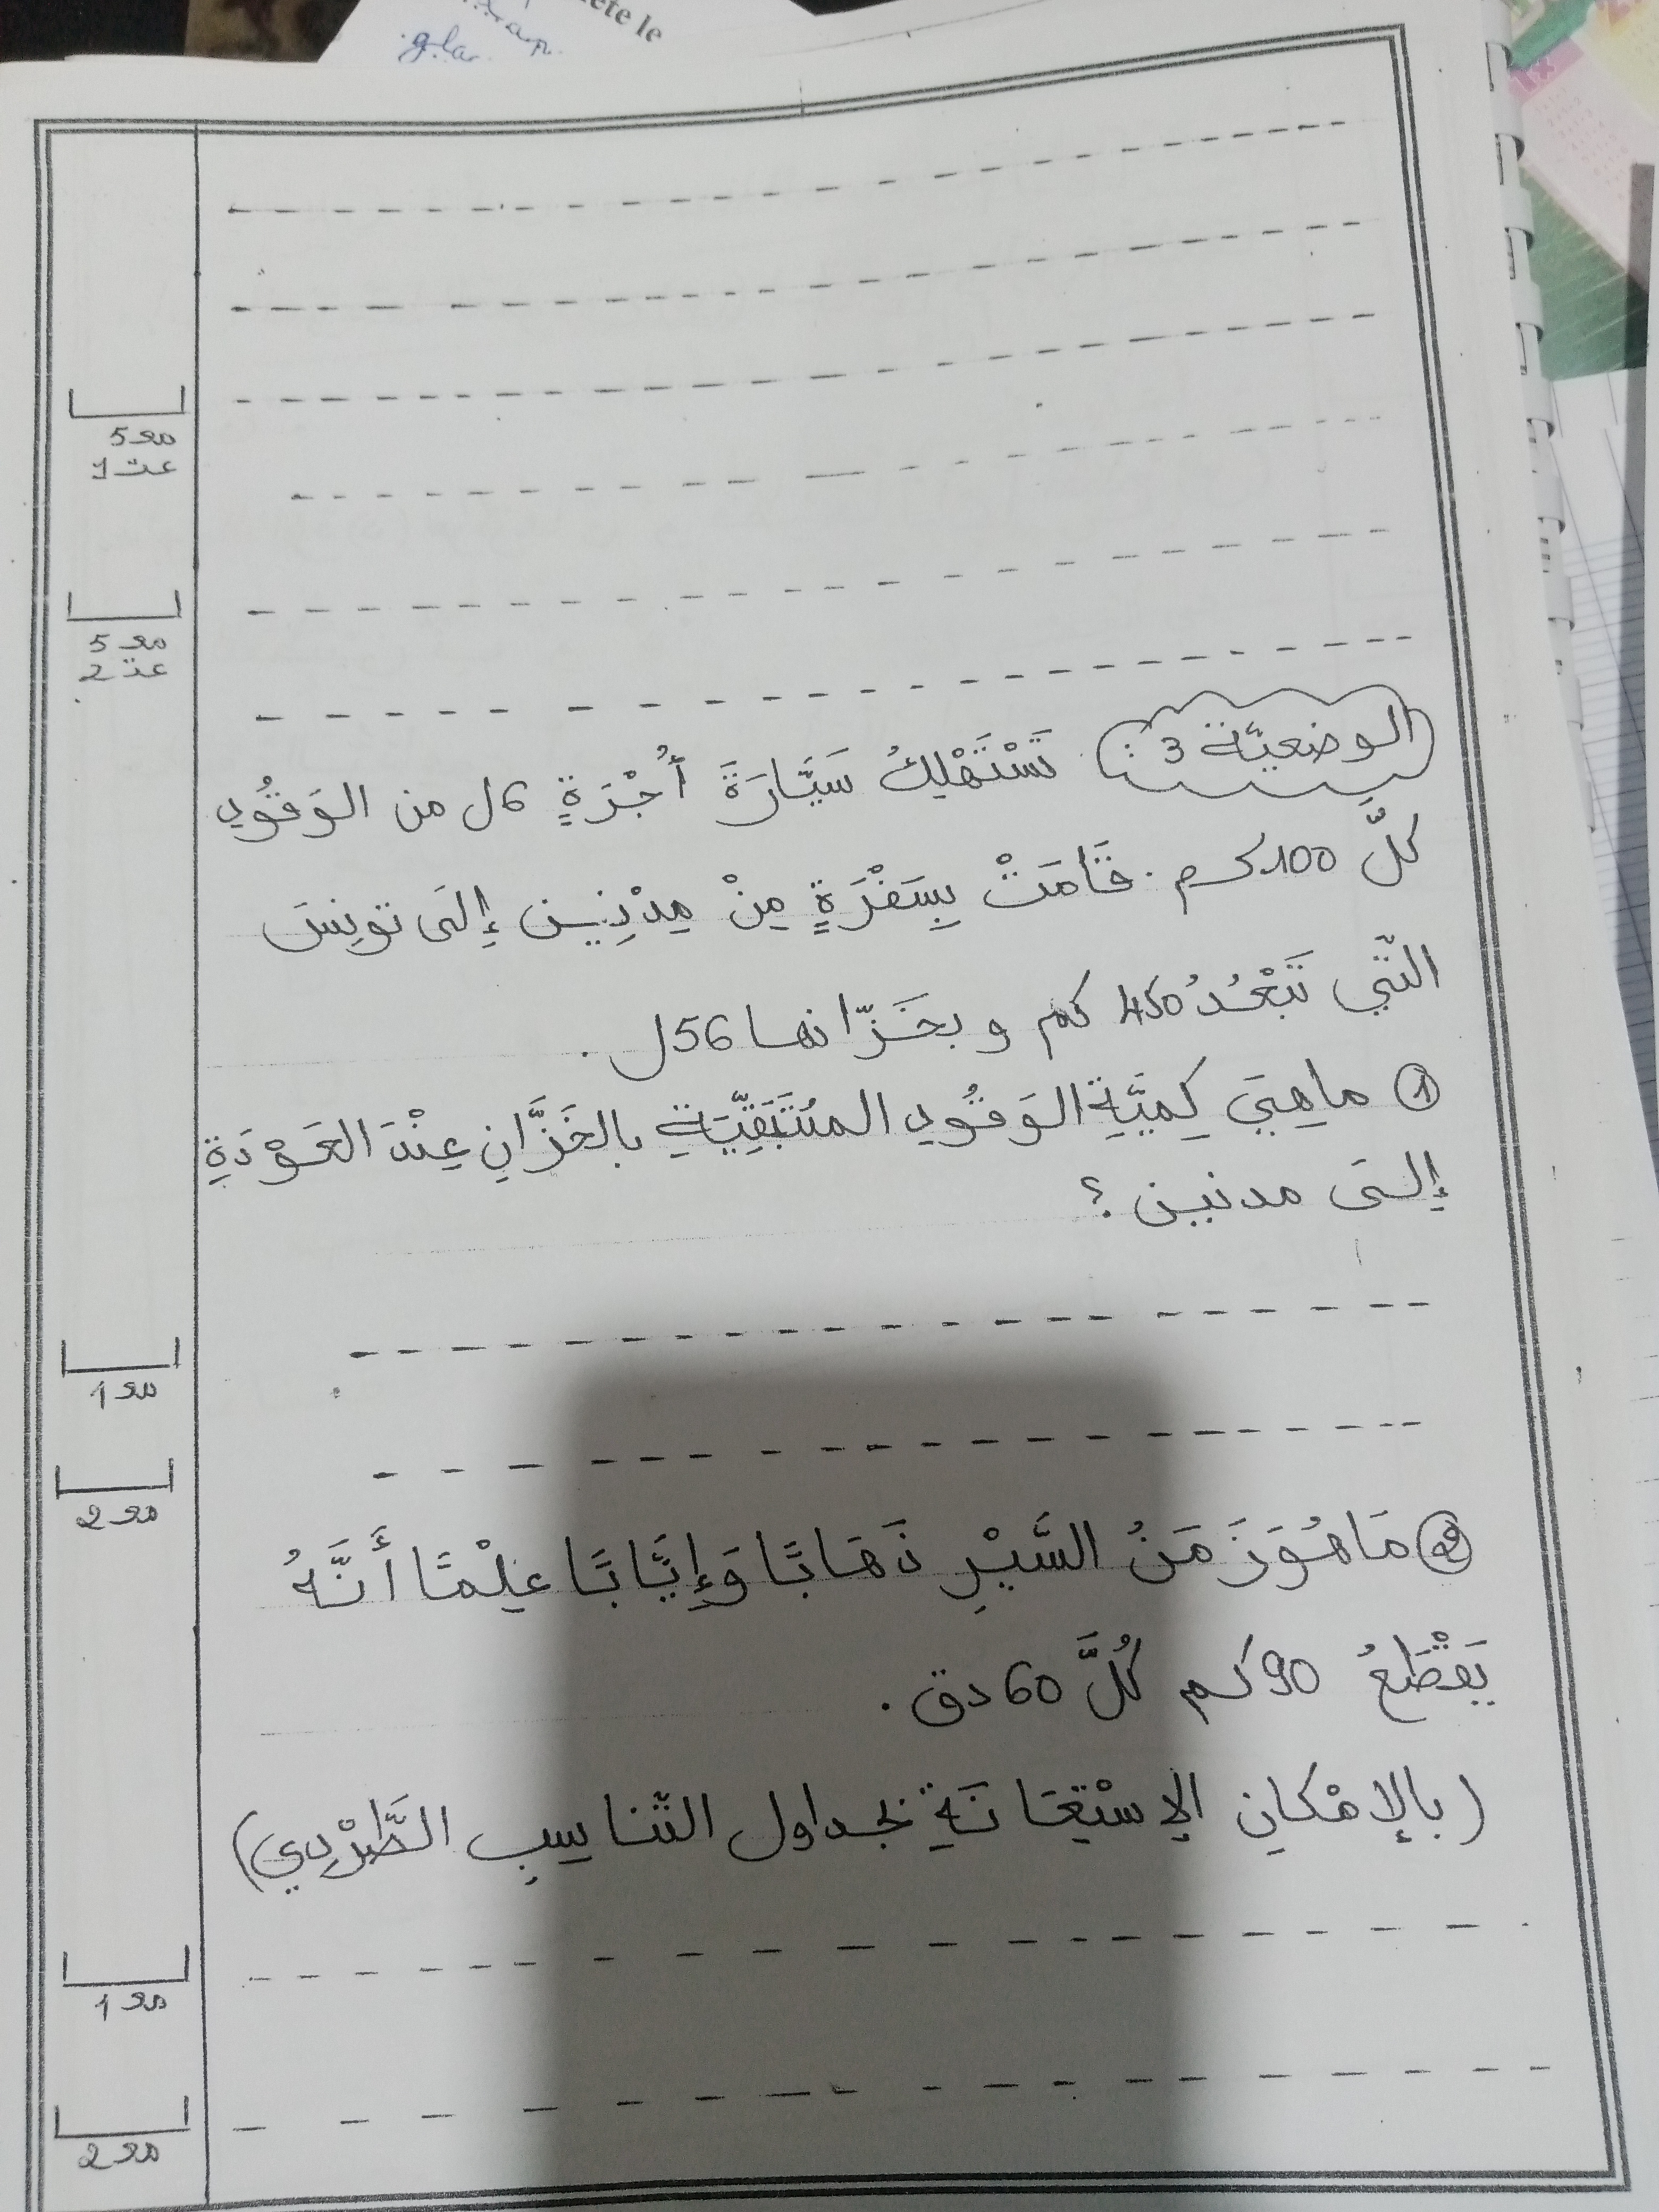 ète le
gla
الوضعيّة 3 : تَسْتَهْلِكُ سَيَّارَةَ أُجْرَةٍ 6ل من الوَقُودِ
كلَّ 100كم . قَامَتْ بِسَفْرَةٍ مِنْ مِدْنِين إِلَى تونس
الّتي تَبْعُدُ 450 كم و بخَزّانها 56ل .
① ماهِيَ كِميَّةِ الوَقُودِ المُتَبَقِّيَةِ بالخَزَّانِ عِنْدَ العَوْدَةِ
إلى مدنين ؟
② مَاهُوَ زَمَنُ السَّيْرِ ذَهَابًا وَإِيَّابًا عِلْمًا أَنَّهُ
يَقْطَعُ 90كم كُلَّ 60دق .
(بالإمْكانِ الإسْتِعَانَةِ بجداول التّناسبِ الطَّرْدِي)
معـ 5
عت 1
معـ 5
عت 2
معـ 1
معـ 2
معـ 1
معـ 2